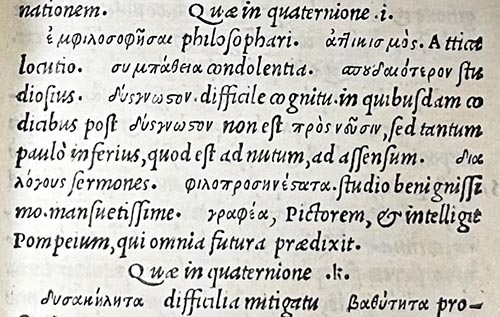 nationem. Quæ in quaternione .i.
ἐμφιλοσοφῆσαι philosophari. ἀττικισμὸς. Atticæ
locutio. συμπάθεια condolentia. σπουδαιότερον stu
diosius. δύσγνωστον. difficile cognitu. in quibusdam co
dicibus post δύσγνωστον non est πρὸς νεῦσιν, sed tantum
paulò inferius, quod est ad nutum, ad assensum. δια
λόγους sermones. φιλοπροσηνέστατα. studio benignissi
mo. mansuetissime. γραφέα, Pictorem, & intelligit
Pompeium, qui omnia futura prædixit.
Quæ in quaternione .k.
δυσαπήλητα difficilia mitigatu βαθύτητα pro-